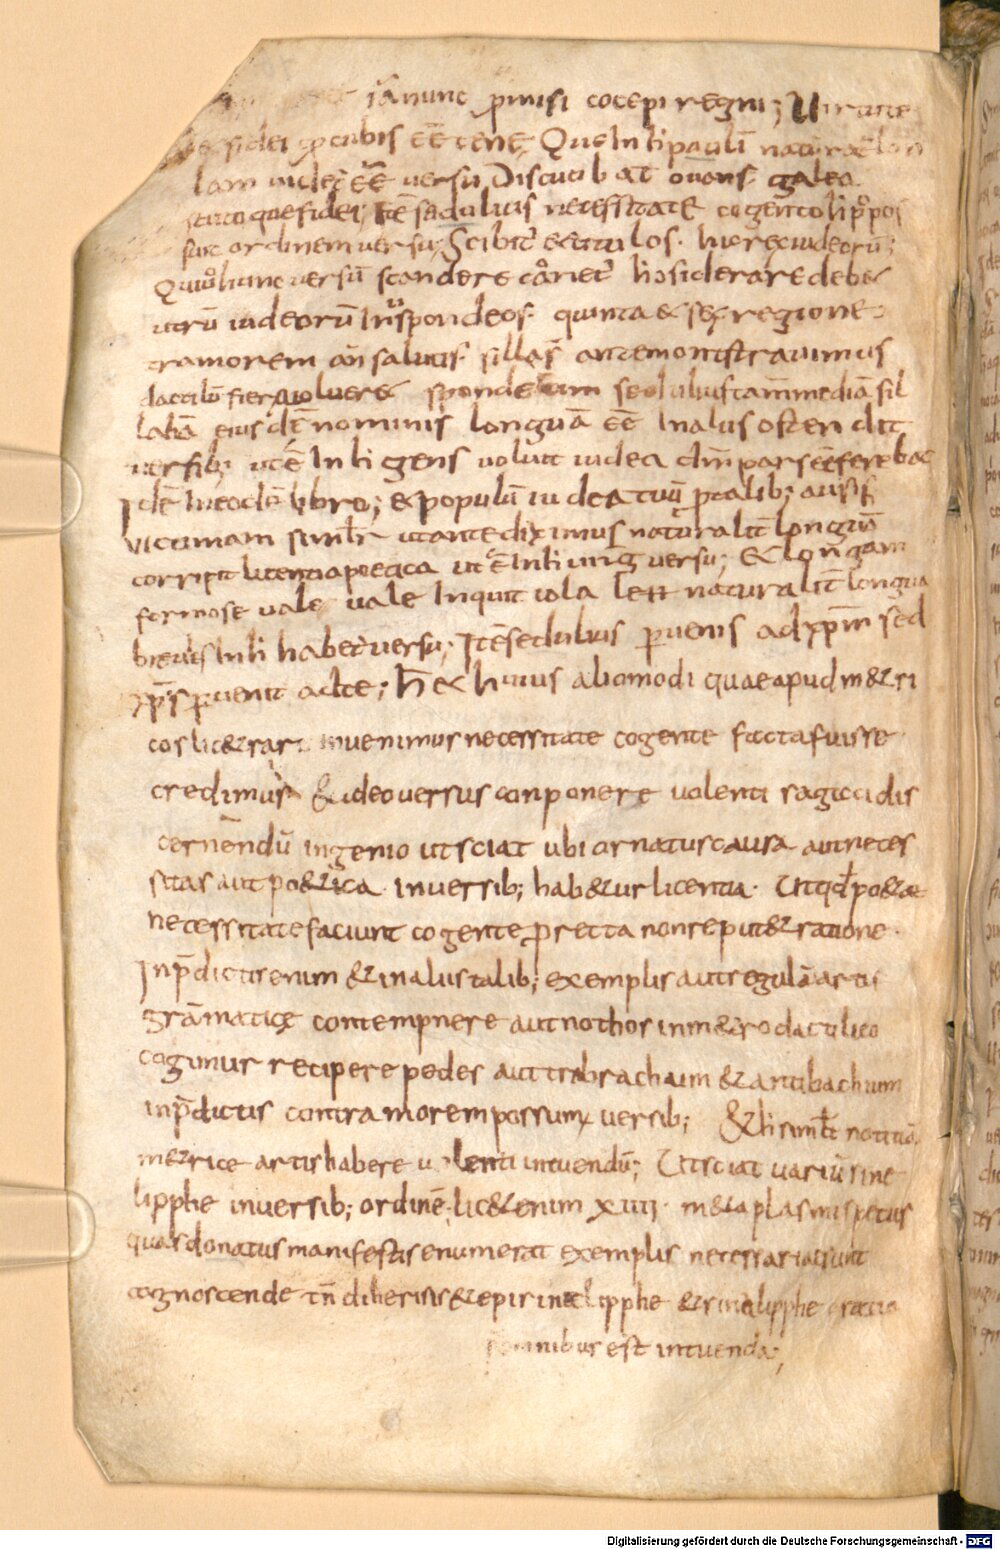 iā nunc ꝓmisi cocepi regni; U
sidei ꝓcubis eē tenē; Que In li pauli naturā
lam iudei eē versū Discutib at ouans galea
que fidei; Itē sedulius necessitate cogente li p̱pos
ordinem versu; Scibit et titulos. hic rex iudeorū;
Quiuͦ hunc versū scandere cōriet hosiderare debet
utrū iudeorū In spondeos quinta & sex regione
tra morem an salutis sillas antemonstrauimus
dactilū fier uoluer& spondeum sedulius tam mediā sil
labā eius dē nominis longuā eē In alus ostendit
versib; ut ē In li gens uoluit iudea dm̄ pars efferebac
Idē In eodē libro; & populū iudea tuū ꝓtalib; ausis
uictimam simlr̄ ut ante diximus naturalit̄ longuā
corripit licentia poetica ut ē In li uirg versu; & longam
formose vale vale Inquit iola lett naturalit̄ longua
breuis In li habet versu; Itē sedulius ꝑuenis ad xp̄m sed
xp̄s ꝑuenit ad te; h̄ & huius aliomodi quae apud m&ri
cos lic& rar inuenimus necessitate cogente facta fuisse
credimus & ideo versus conponere volenti sagaci dis
cernendū ingenio ut sciat ubi ornatus causa aut neces
sitas aut po&ica inversib; hab&ur licentia. Ut qd̄ po&ae
necessitate faciunt cogente ꝓ recta non reput& ratione.
In p̄dictis enim & in alus talib; exemplis aut regulā artis
grāmaticę contempnere aut nothos in m&ro dactilico
cogimur recipere pedes aut trabrachum & antibachium
in p̄dictis contra morem possumꝰ versib; & li simlt̄ notitiā
m&rice artis habere uolenti intuendū; Ut sciat variū sine
lipphe inversib; ordinē. lic& enim xiiii. m&aplasmi spetus
quas donatus manifestis enumerat exemplis necessaria sunt
cognoscende tn̄ diheresis & epirinelipphe & sinalipphe ratio
omnibus est intuenda;
Digitalisierung gefördert durch die Deutsche Forschungsgemeinschaft - DFG